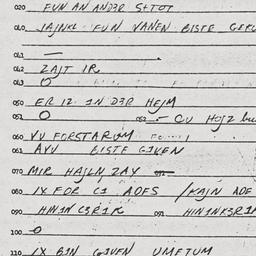 020 FUN AN ANDER SHTOT
040 IAJNKL FUN VANEN BISTE GEKU
041 —
042 ZAJT IR
043 O
050 ER IZ IN D3R HEJM
051 O 052 - CU HOJZ
060 VU FORSTARUM
061 AVU BISTE GIVEN
070 MIR HAJLN ZAY 071
080 IX FOR CI AOFS / KAJN AOF
090 HININ C3RIK 091 HININK3RIK
100 O
110 IX BIN GIVEN UMETUM